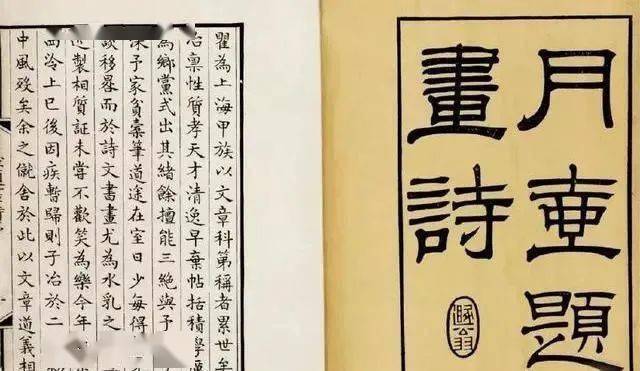 月壺題
畫詩
瞿為上海甲族以文章科第稱者累世矣
冶稟性質孝天才清逸早棄帖括積學
為鄉黨式出其緒餘擅能三絶與予
深予家貧橐筆道途在室日少每得
談移晷而於詩文書畫尤為水乳之
近製相質証未嘗不歡笑為樂今年
西泠上巳後因疾暫歸則子冶於二
中風歿矣余之僦舍於此以文章道義相